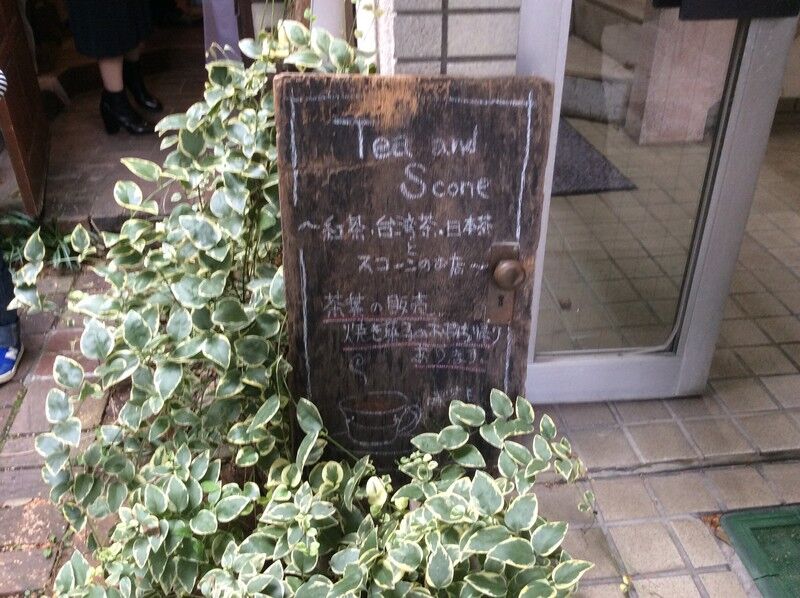 Tea and
Scone
〜紅茶、台湾茶、日本茶
と
スコーンのお店〜
茶葉の販売
焼き菓子のお持ち帰り
あります